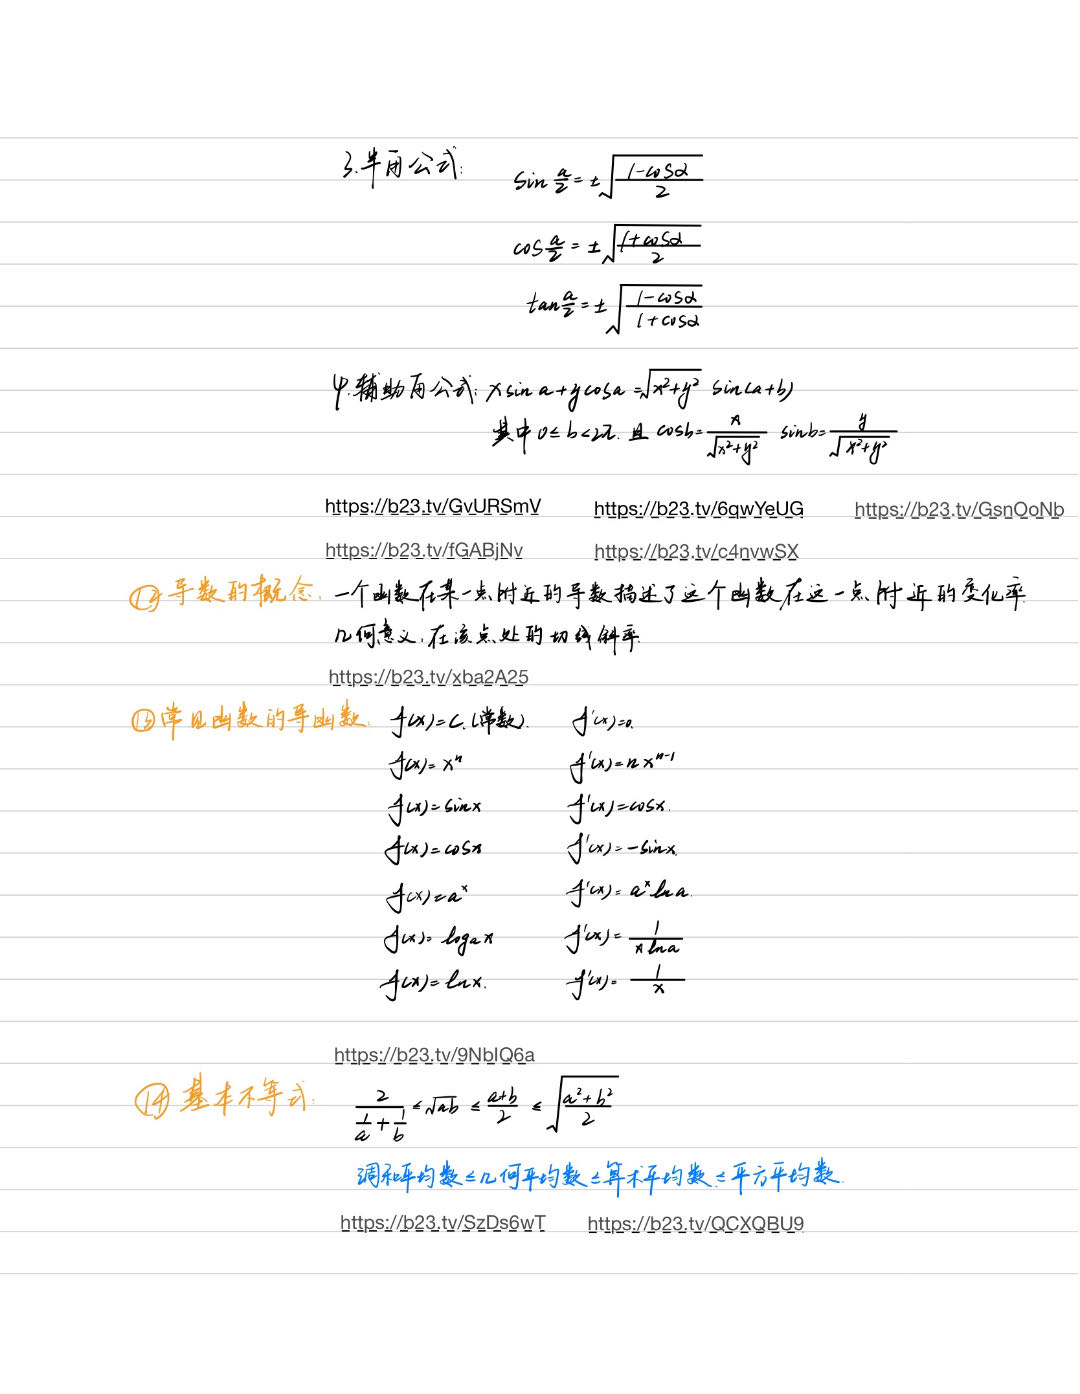 3.半角公式: sin a/2 = ±√((1-cosα)/2)
cos a/2 = ±√((1+cosα)/2)
tan a/2 = ±√((1-cosα)/(1+cosα))
4.辅助角公式: x sin a + y cos a = √(x²+y²) sin(a+b)
其中 0≤b<2π. 且 cosb = x/√(x²+y²) sinb = y/√(x²+y²)
https://b23.tv/GvURSmV https://b23.tv/6qwYeUG https://b23.tv/GsnOoNb
https://b23.tv/fGABjNv https://b23.tv/c4nvwSX
⑫导数的概念: 一个函数在某一点附近的导数描述了这个函数在这一点附近的变化率.
几何意义:在该点处的切线斜率.
https://b23.tv/xba2A25
⑬常见函数的导函数. f(x)=C.(常数). f'(x)=0.
f(x)=xⁿ f'(x)=nxⁿ⁻¹
f(x)=sinx f'(x)=cosx.
f(x)=cosx f'(x)=-sinx.
f(x)=aˣ f'(x)=aˣlna.
f(x)=logₐx f'(x)=1/(xlna)
f(x)=lnx. f'(x)=1/x
https://b23.tv/9NbIQ6a
⑭基本不等式: 2/(1/a+1/b) ≤ √ab ≤ (a+b)/2 ≤ √((a²+b²)/2)
调和平均数≤几何平均数≤算术平均数≤平方平均数.
https://b23.tv/SzDs6wT https://b23.tv/QCXQBU9